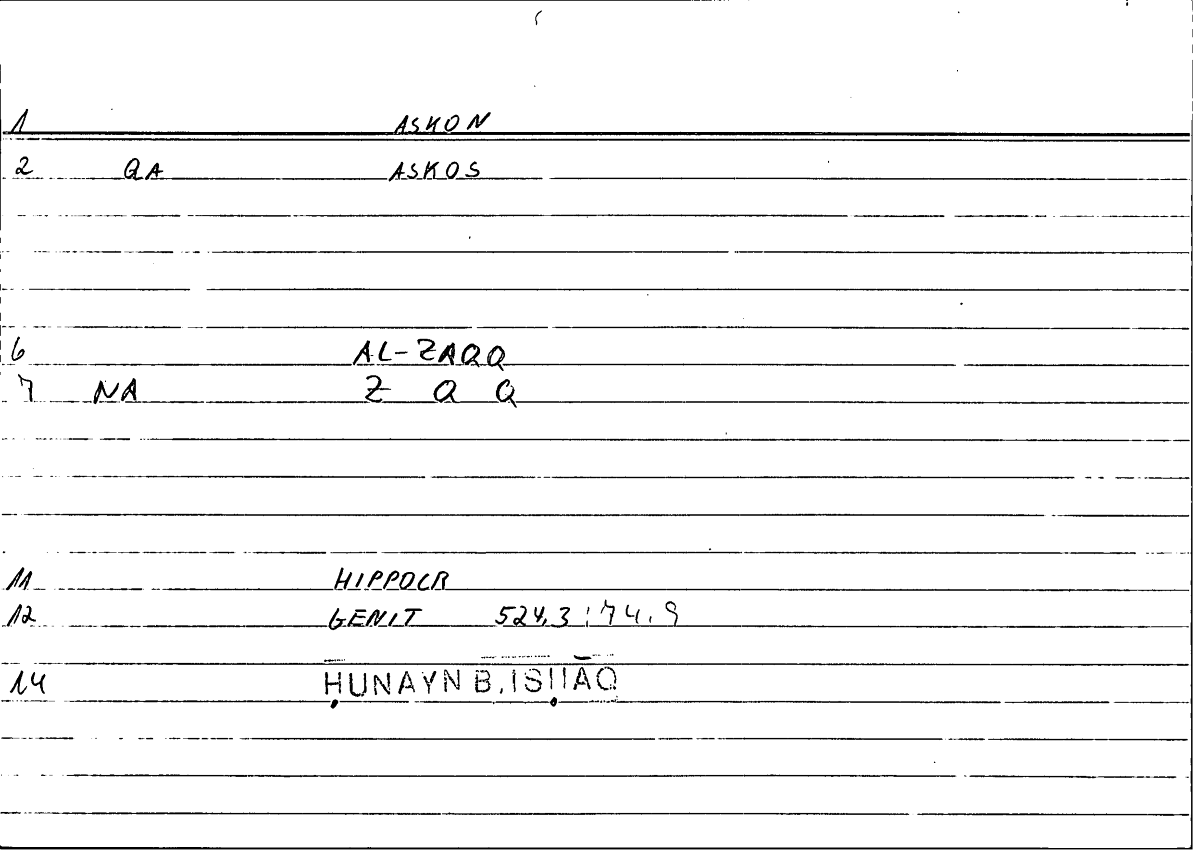 1 ASKON
2 QA ASKOS
6 AL-ZAQQ
7 NA Z Q Q
11 HIPPOCR
12 GENIT 524,3 ; 74,9
14 ḤUNAYN B. ISḤĀQ